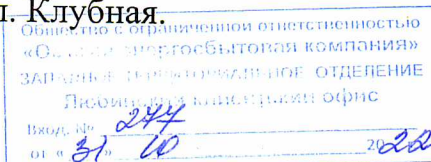 л. Клубная.
Общество с ограниченной ответственностью
« энергосбытовая компания»
ЗАПАДНОЕ ОТДЕЛЕНИЕ
клиентский офис
Вход. № 277
от « 31 » 10 2022